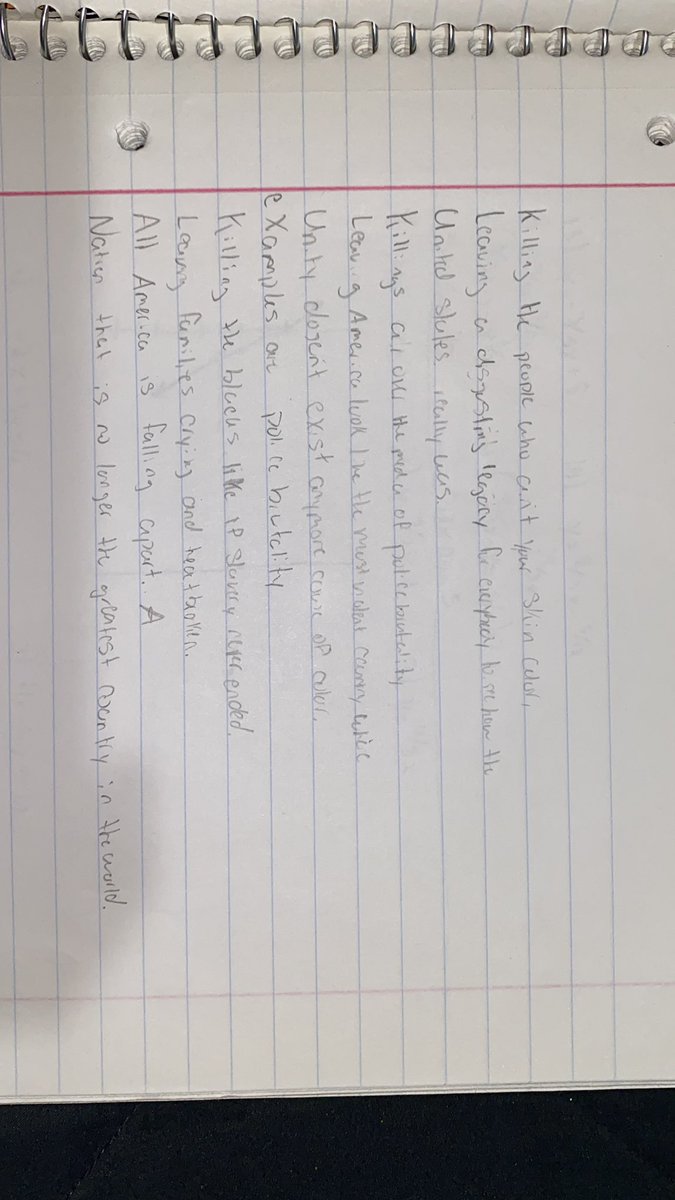 Killing the people who ain't your skin color,
Leaving a disgusting legacy for everybody to see how the
United States really was.
Killings all over the media of police brutality
Leaving America look like the most violent country alive
Unity dosent exist anymore cause of color.
eXamples are police brutality
Killing the blacks like if slavery never ended.
Leaving families crying and heartbroken.
All America is falling apart. A
Nation that is no longer the greatest country in the world.